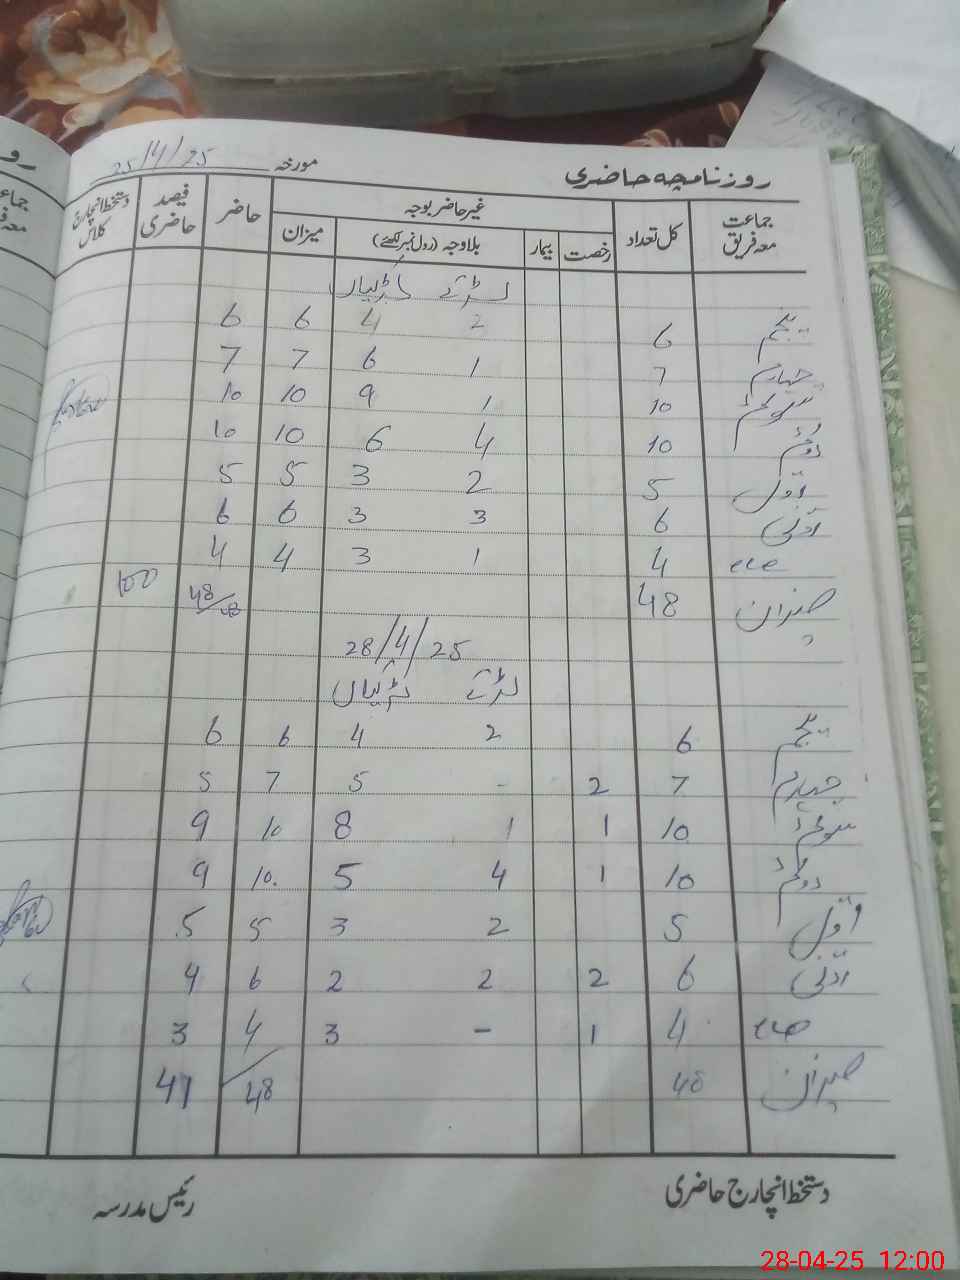 روزنامچہ حاضری مورخہ 25/4/25
جماعت معہ فریق کل تعداد غیر حاضر بوجہ حاضر فیصد حاضری دستخط انچارج کلاس
رخصت بیمار بلاوجہ (رول نمبر لکھئے) میزان
لڑکے لڑکیاں
پنجم 6 2 4 6 6
چہارم 7 1 6 7 7
سوئم 10 1 9 10 10
دوئم 10 4 6 10 10
اول 5 2 3 5 5
ادنیٰ 6 3 3 6 6
4 1 3 4 4
میزان 48 48/48 100
28/4/25
لڑکے لڑکیاں
پنجم 6 2 4 6 6
چہارم 7 2 - 5 7 5
سوئم 10 1 1 8 10 9
دوئم 10 1 4 5 10. 9
اول 5 2 3 5 5
ادنیٰ 6 2 2 2 6 4
4 1 - 3 4 3
میزان 48 48 / 41
دستخط انچارج حاضری رئیس مدرسہ
28-04-25 12:00